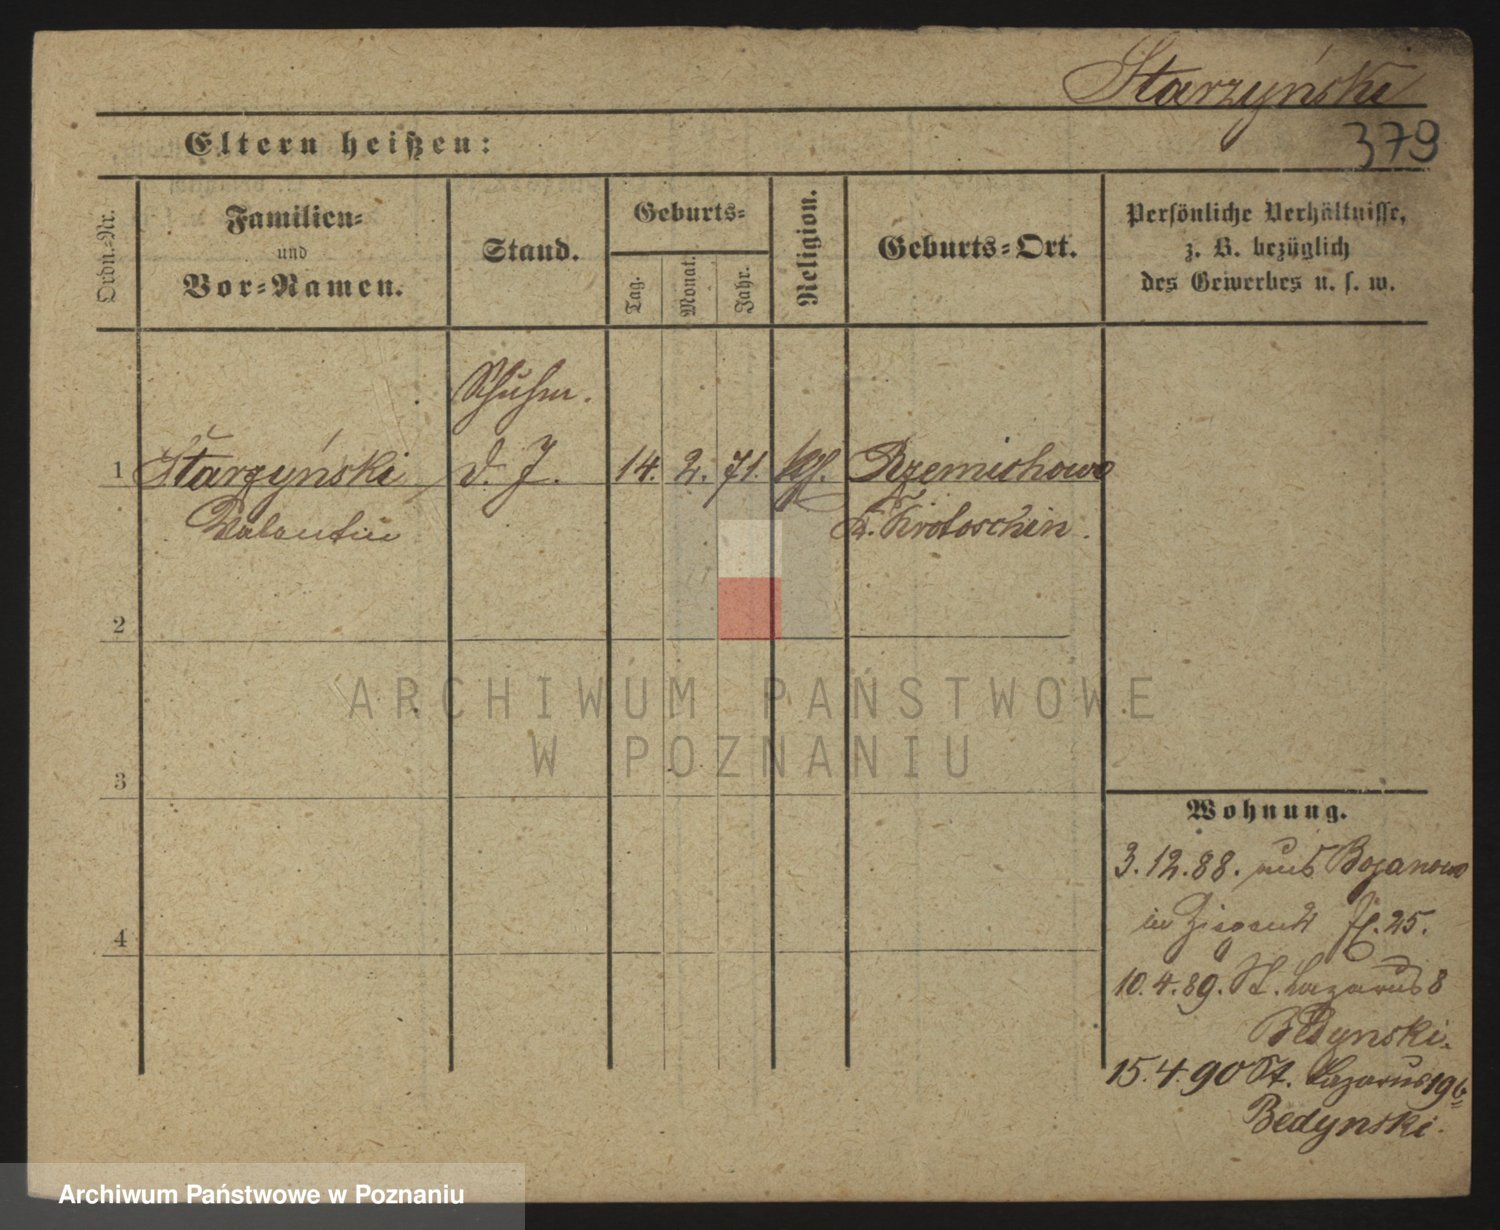 Starzyński
379
Eltern heißen:
Ordn.-Nr.
Familien-
und
Vor-Namen.
Stand.
Geburts-
Tag.
Monat.
Jahr.
Religion.
Geburts-Ort.
Persönliche Verhältnisse,
z. B. bezüglich
des Gewerbes u. s. w.
Schuhm.
1 Starzyński d. J. 14. 2. 71. kath. Rzemichowo
Valentin Kr. Krotoschin.
2
3
4
ARCHIWUM PAŃSTWOWE
W POZNANIU
Wohnung.
3.12.88. aus Bojanowo
in 25.
10.4.89. St. Lazarus 8
Bedynski.
15.4.90 St. Lazarus 19b
Bedynski.
Archiwum Państwowe w Poznaniu